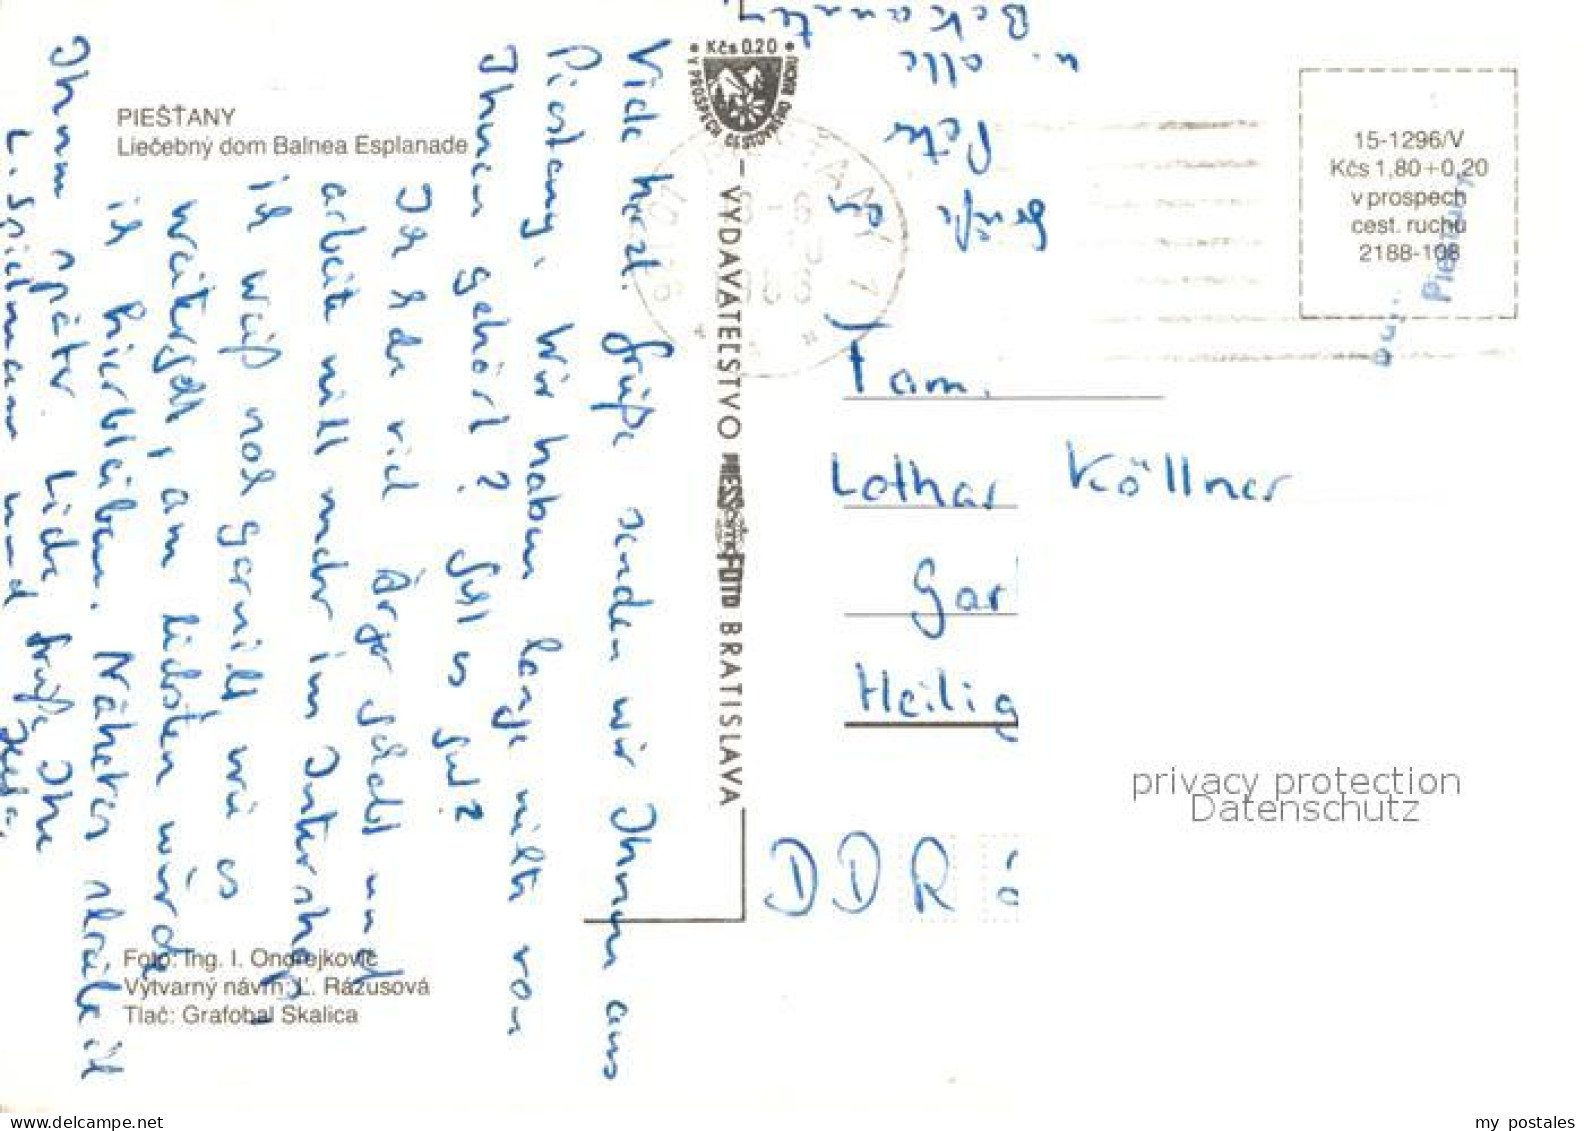 PIEŠŤANY
Liečebný dom Balnea Esplanade
Viele herzl. Grüße senden wir Ihnen aus
Piestany. Wir haben lange nichts von
Ihnen gehört? Geht es gut?
Ich habe viel Ärger gehabt und
arbeite nicht mehr im Intershop
ich weiß noch garnicht wie es
weitergeht, am liebsten würde
ich hierbleiben. Näheres schreibe ich
Ihnen später. Liebe Grüße Ihre
L. Spielmann und
Grüße an
Peter
u. alle
Bekannten
Foto: Ing. I. Ondrejkovič
Výtvarný návrh: Ľ. Rázusová
Tlač: Grafobal Skalica
• Kčs 0.20 •
V PROSPECH CESTOVNÉHO RUCHU
VYDAVATEĽSTVO PRESSFOTO BRATISLAVA
15-1296/V
Kčs 1,80+0,20
v prospech
cest. ruchu
2188-108
Fam.
Lothar Köllner
Gar
Heilig
DDR
privacy protection
Datenschutz
www.delcampe.net
my_postales